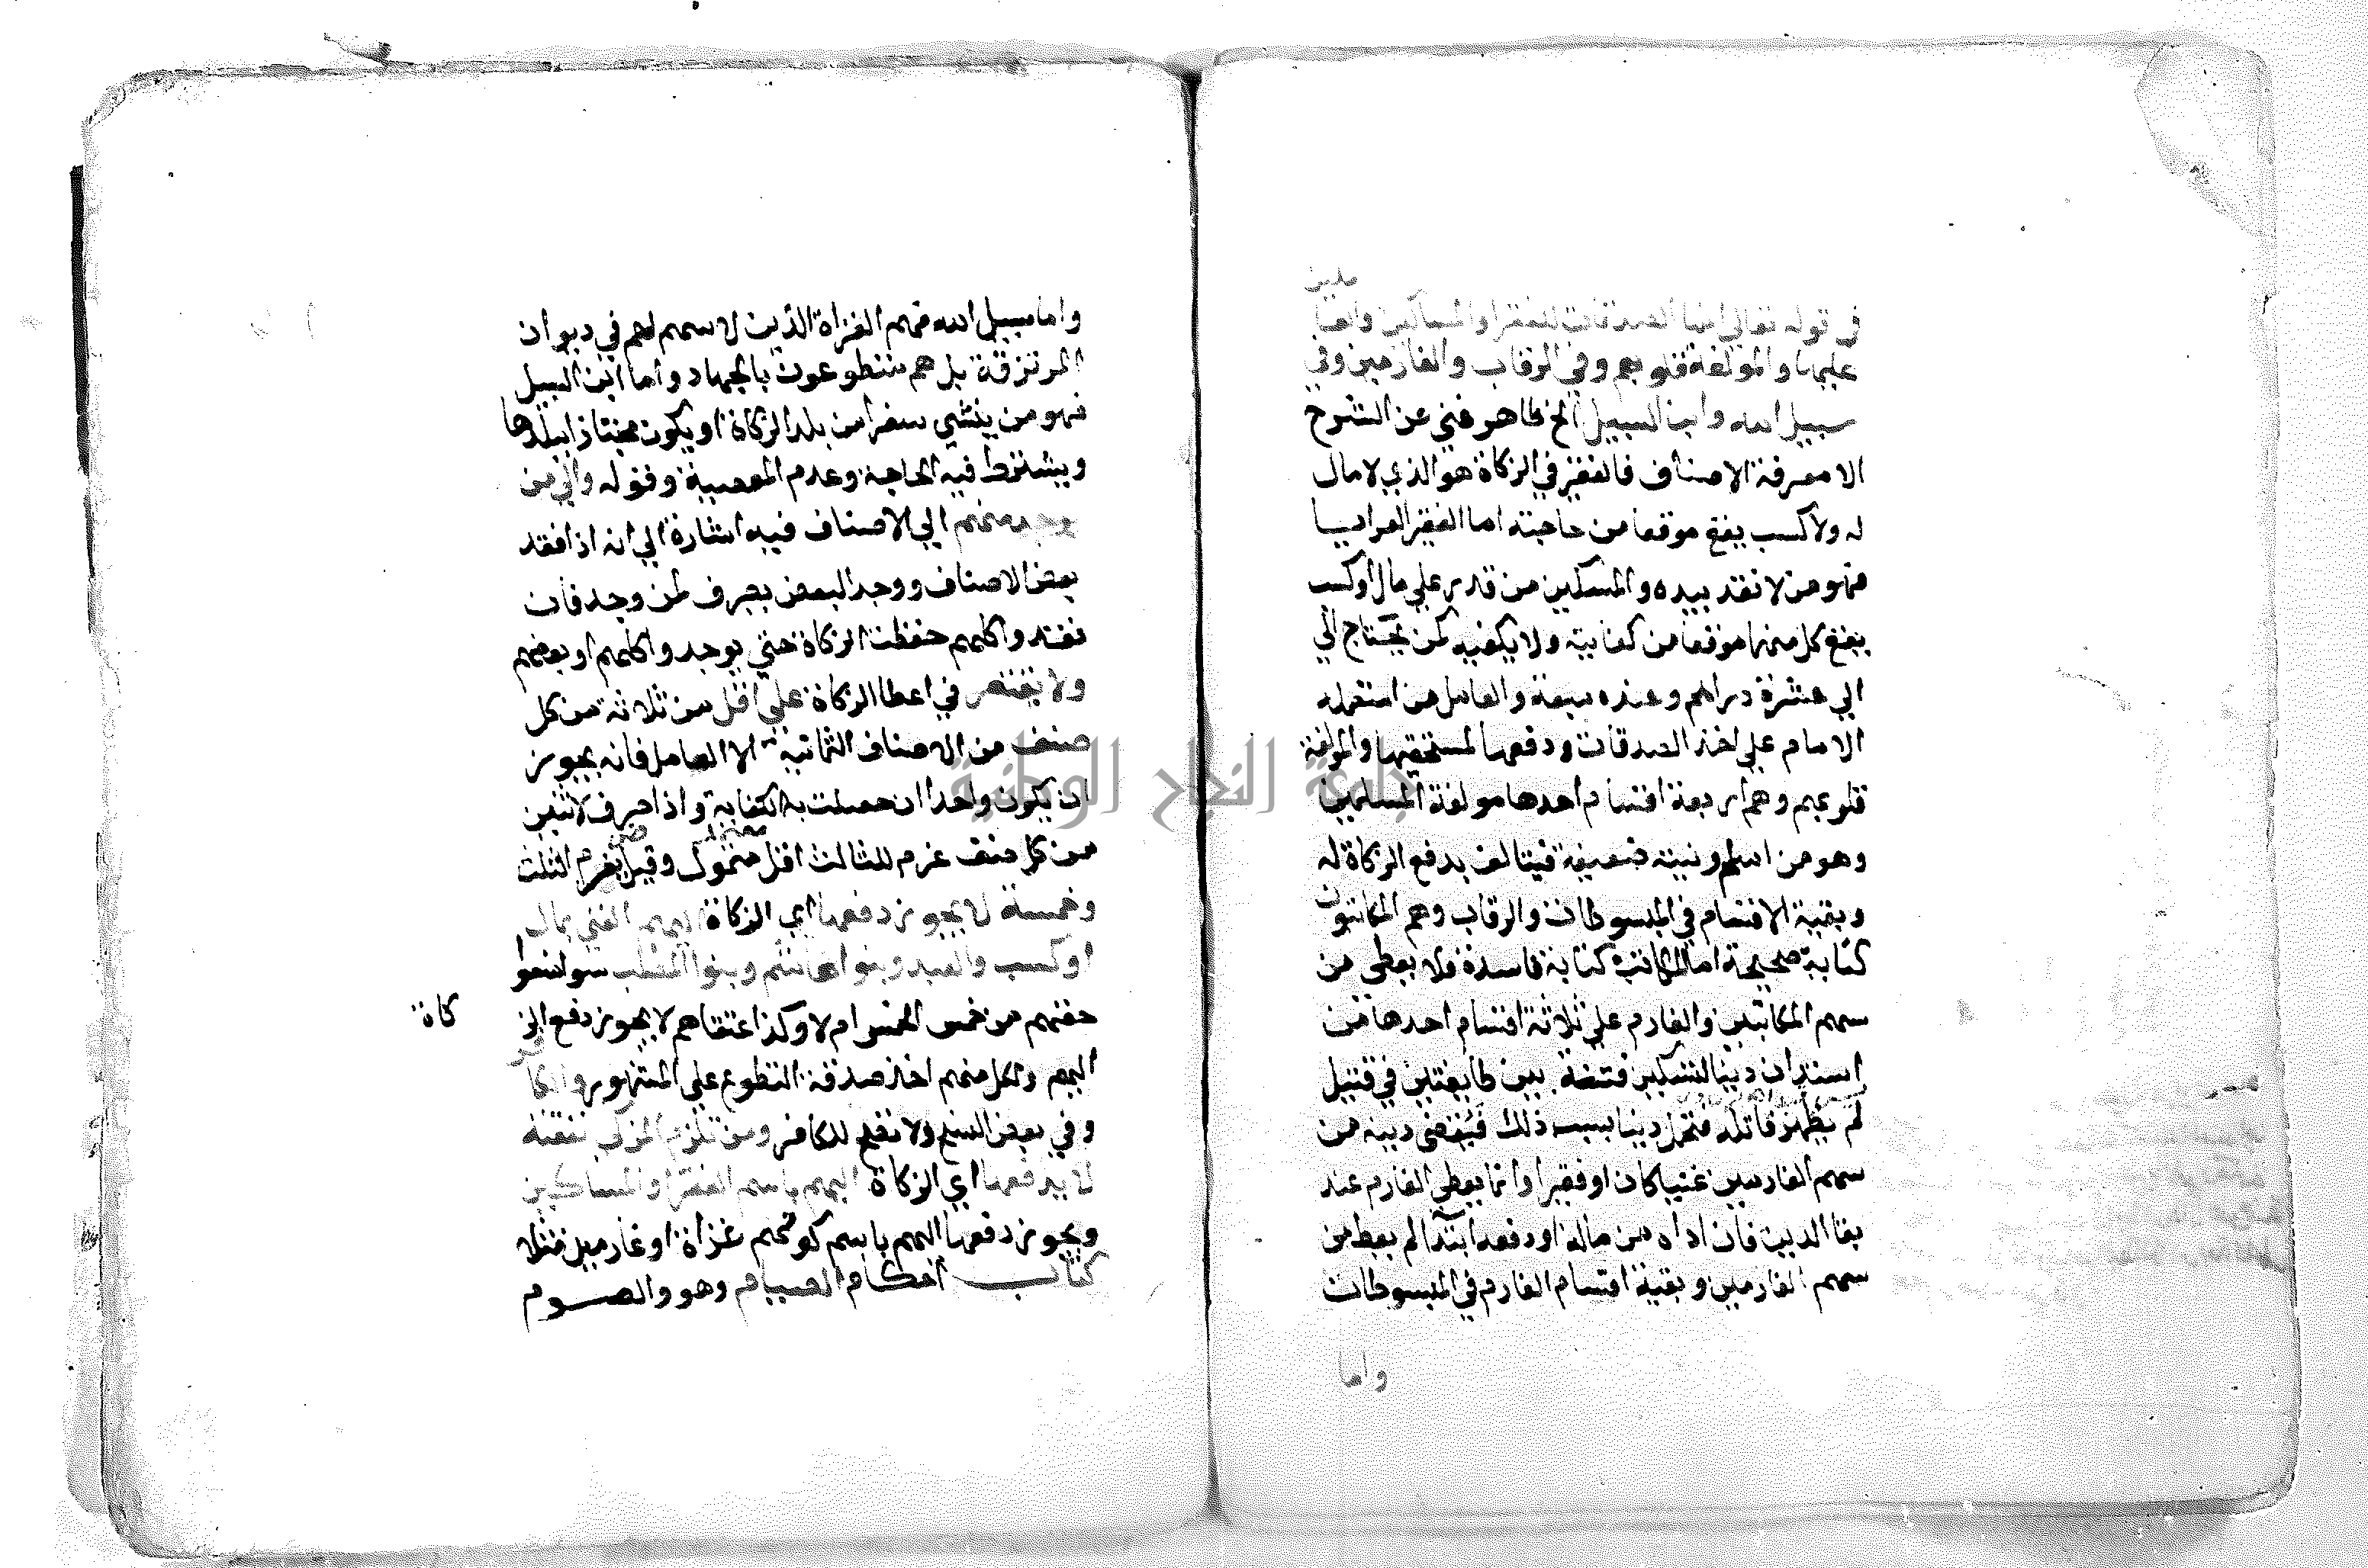 في قوله تعالى انما الصدقات للفقرا والمساكين والعا
ملين
عليها والمولفة قلوبهم وفي الرقاب والغارمين وفي
سبيل الله وابن السبيل الخ ظاهر غني عن الشرح
الا معرفة الاصناف فالفقير في الزكاة هو الذي لا مال
له ولا كسب يقع موقعا من حاجته اما الفقير العرايا
فهو من لا نقد بيده والمسكين من قدر علي مال او كسب
يقع كل منهما موقعا من كفايته ولا يكفيه كمن يحتاج الي
الي عشرة دراهم وعنده سبعة والعامل من استعمله
الامام علي اخذ الصدقات ودفعها لمستحقيها والمولفة
قلوبهم وهم اربعة اقسام احدها مولفة المسلمين
وهو من اسلم ونيته ضعيفة فيتالف بدفع الزكاة له
وبقية الاقسام في المبسوطات والرقاب وهم المكاتبون
كتابة صحيحة اما المكاتب كتابة فاسدة فلا يعطي من
سهم المكاتبين والغارم علي ثلاثة اقسام احدها من
استدان دينا لتسكين فتنة بين طايفتين في قتيل
لم يظهر قاتله فتحمل دينا بسبب ذلك فيقضي دينه من
سهم الغارمين غنيا كان او فقيرا وانما يعطي الغارم عند
بقا الدين فان اداه من ماله او دفعه ابتدا لم يعط من
سهم الغارمين وبقية اقسام الغارم في المبسوطات
واما
واما سبيل الله فهم الغزاة الذين لا سهم لهم في ديوان
المرتزقة بل هم متطوعون بالجهاد واما ابن السبيل
فهو من ينشي سفرا من بلد الزكاة او يكون مجتازا ببلدها
ويشترط فيه الحاجة وعدم المعصية وقوله والي من
يوجد منهم الي الاصناف فيه اشارة الي انه اذا فقد
بعض الاصناف ووجد البعض يصرف لمن وجد فان
فقدوا كلهم حفظت الزكاة حتي يوجدوا كلهم او بعضهم
ولا يقتصر في اعطا الزكاة علي اقل من ثلاثة من كل
صنف من الاصناف الثمانية الا العامل فانه يجوز
ان يكون واحدا ان حصلت به الكفاية واذا صرف لاثنين
من كل صنف غرم للثالث اقل متمول وقيل يغرم الثلث
وخمسة لا يجوز دفعها اي الزكاة اليهم الغني بمال
او كسب والعبد وبنوا هاشم وبنوا المطلب سوا منعوا
حقهم من خمس الخمس ام لا وكذا عتقاهم لا يجوز دفع الز
كاة
اليهم ولكل منهم اخذ صدقة التطوع علي المشهور والكا
فر
وفي بعض النسخ ولا تصح للكافر ومن تلزم المزكي نفقته
لا يدفعها اي الزكاة اليهم باسم الفقرا والمساكين
ويجوز دفعها اليهم باسم كونهم غزاة او غارمين مثلا
كتاب احكام الصيام وهو والصوم